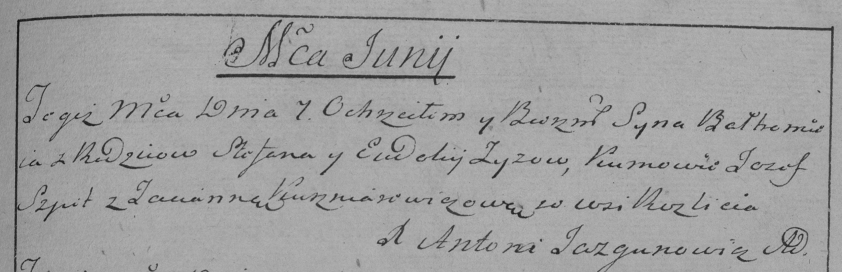 Mc̃a Junij
Tegiż Mc̃a Dnia 7. Ochrzcilem y Bierzm̃ Syna Bałtromie
ia z Rodziców Stefana y Eudokij Zyzow, Kumowie Jozef
Szpit z Taciánną Kuzmiarowiczową ze wsi Kozlicia
X Antoni Jazgunowicz AD.